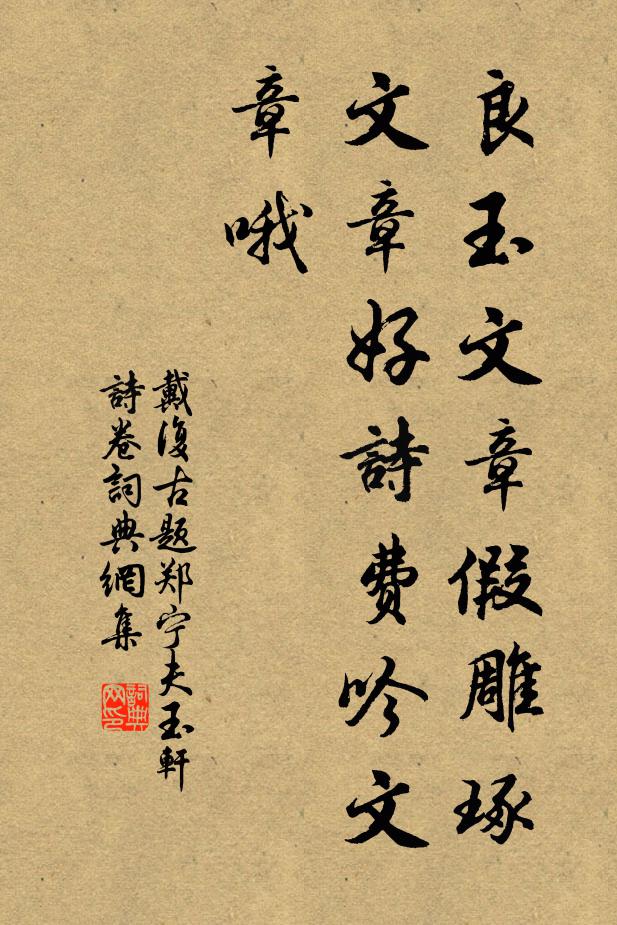 良玉文章假雕琢
文章好詩費吟文
章哦
戴復古题郑宁夫玉軒
詩卷詞典網集
詞典网印